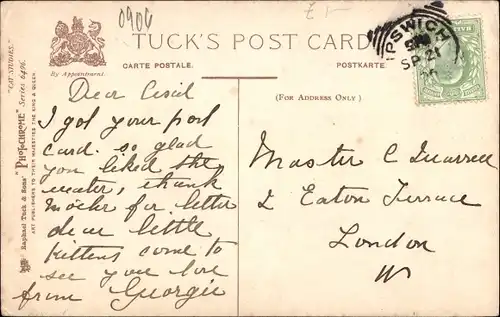 0906
£1-
TUCK'S POST CARD
By Appointment.
CARTE POSTALE.
POSTKARTE
(FOR ADDRESS ONLY)
"CAT STUDIES."
"PHOTOCHROME" Series 6496.
Raphael Tuck & Sons'
ART PUBLISHERS TO THEIR MAJESTIES THE KING & QUEEN.
IPSWICH
SP 21
Dear Cecil
I got your post
card. so glad
you liked the
water, thank
Mother for letter
dear little
kittens come to
see you love
from Georgie
Master C
2 Eaton Terrace
London
W